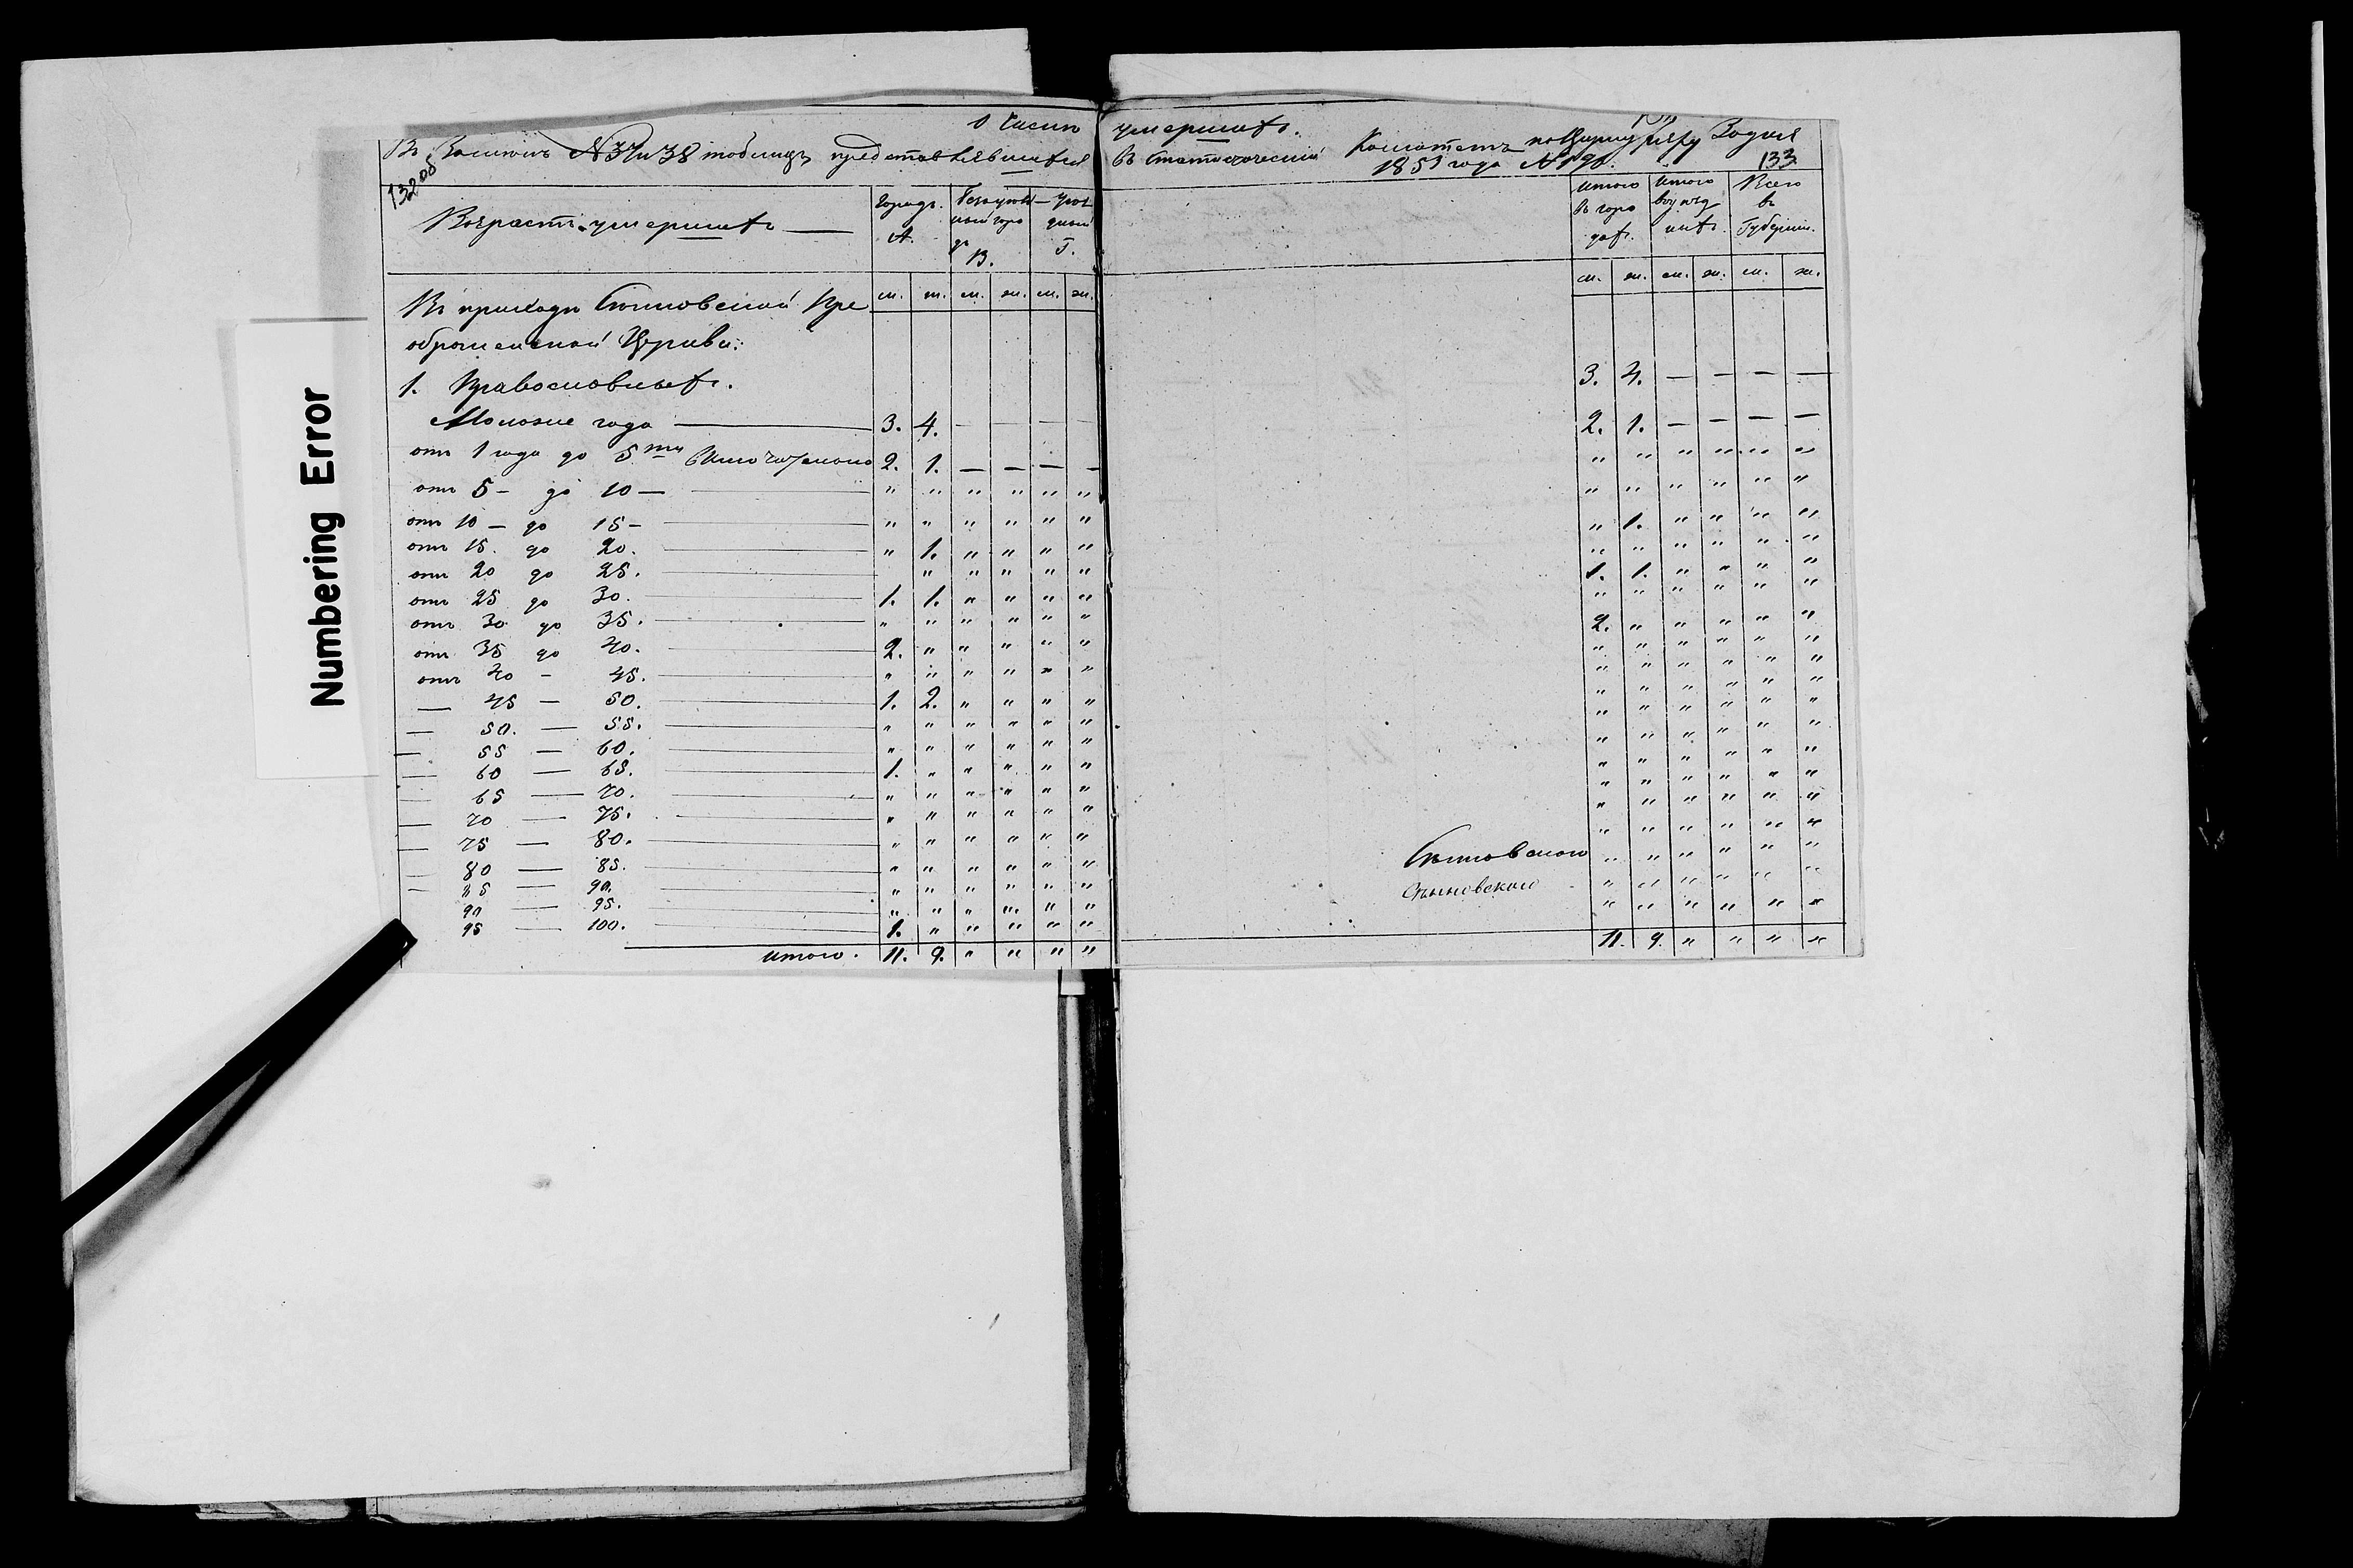 Numbering Error
О числѣ умершихъ.
Въ № 37 и 38 таблицъ представлявшихся въ Статистическій Комитетъ по Циркуляру
1851 года №
132 об
133
Возрастъ умершихъ
Городъ. А.
В.
Г.
Итого въ горо дахъ.
Итого въ уѣзд ныхъ.
Всего въ Губерніи.
м. ж. м. ж. м. ж. м. ж. м. ж. м. ж.
Въ приходѣ Пре
ображенской Церкви:
1. Православныхъ.
Моложе года 3. 4. — — — — 3. 4. — — — —
отъ 1 года до 5ти включительно 2. 1. — — — — 2. 1. — — — —
отъ 5 — до 10 — " " " " " " " " " " " "
отъ 10 — до 15 — " " " " " " " " " " " "
отъ 15. до 20. " 1. " " " " " 1. " " " "
отъ 20 до 25. " " " " " " " " " " "
отъ 25 до 30. 1. 1. " " " " 1. 1. " " " "
отъ 30 до 35. " " " " " " " " " " " "
отъ 35 до 40. 2. " " " " " 2. " " " " "
отъ 40 — 45. " " " " " " " " " " " "
— 45 — 50. 1. 2. " " " " " " " " " "
— 50. — 55. " " " " " " " " " " " "
— 55 — 60. " " " " " " " " " " " "
— 60 — 65. 1. " " " " " " " " " " "
— 65 — 70. " " " " " " " " " " " "
— 70 — 75. " " " " " " " " " " " "
— 75 — 80. " " " " " " " " " " " "
— 80 — 85. " " " " " " " " " " " "
— 85 — 90. " " " " " " " " " " " "
90 — 95. " " " " " " " " " " " "
95 — 100. 1. " " " " " " " " " " "
итого. 11. 9. " " " " 11. 9. " " " "